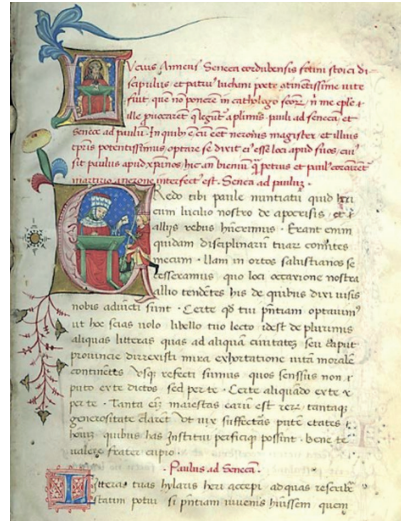 Ucius Anneus Seneca cordubensis fotini stoici di
scipulus et patruus luchani poete continetissime vite
fuit que non ponerem in cathologo scorum, ni me eple i
lle provocarent q legunt a plurimis pauli ad seneca et
senece ad paulu. In quibus cum esset neronis magister et illius
tpris potentissimus optare se dixit eius esse loci apud suos cuius
sit paulus apud xpianos hic an bienium q petrus et paul coronarent
martirio a nerone interfectus est. Seneca ad paulum
Redo tibi paule nuntiatu quid heri
cum lucilio nostro de apocrifis et
allys rebus huerimus. Erant enim
quidam disciplinaru tuar comites
mecum. Nam in ortos salustianos se
cesseramus quo loci occasione nostra
allio tendentes his de quibus dixi visis
nobis adiucti sunt. Certe qd tui pntiam optavim
ut hoc scias volo libello tuo lecto idest de plurimis
aliquas litteras quas ad aliqua civitates seu caput
provincie direxisti mira exhortatione vita morale
continetes usq refecti sumus quos sensus non
puto ex te dictos sed per te. Certe aliquado ex te
per te. Tanta eni maiestas earu est rerum tantaq
generositate claret ut vix suffecturas pute etates
hominu quibus has institui perficiq possint. bene te
valere frater cupio.
Paulus ad Senecam
Litteras tuas hylaris heri accepi ad quas rescribere
statim potui si pntiam iuvenis huissem quem